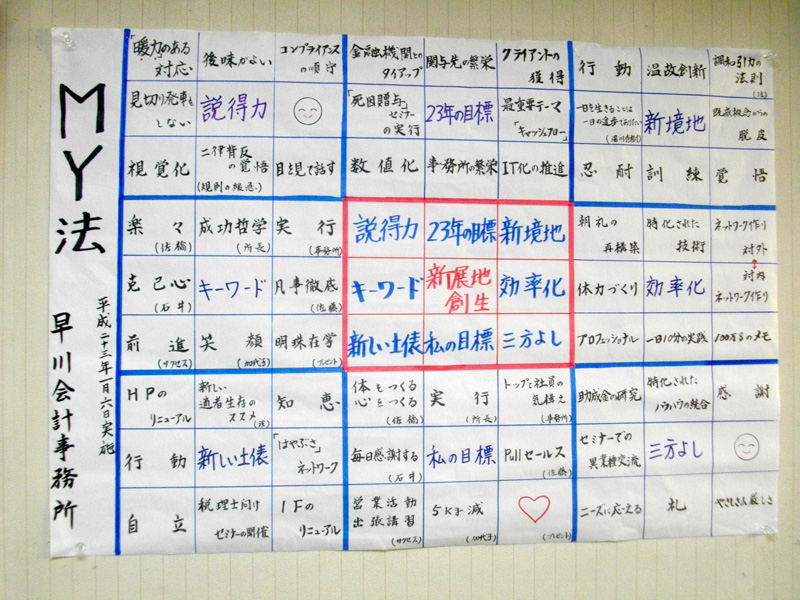 MY法
平成二十三年一月六日実施
早川会計事務所
「暖力のある対応」
後味がよい
コンプライアンスの順守
見切り発車をしない
説得力
視覚化
二律背反の覚悟
(規則の緩急)
目を見て話す
金融機関とのタイアップ
関与先の繁栄
クライアントの獲得
「死因贈与」セミナーの実行
23年の目標
最重要テーマ
「キャッシュフロー」
数値化
事務所の繁栄
IT化の推進
行動
温故創新
調和引力の法則
一日を生きることは
一日の進歩でありたい
新境地
既成概念からの脱皮
忍耐
訓練
覚悟
楽々
(佐橋)
成功哲学
(所長)
実行
(事務所)
克己心
(石井)
キーワード
凡事徹底
(佐藤)
前進
(サクセス)
笑顔
(加代子)
明珠在学
(プレゼント)
説得力
23年の目標
新境地
キーワード
新展地創生
効率化
新しい土俵
私の目標
三方よし
朝礼の再構築
特化された技術
ネットワーク作り
対外
体力づくり
効率化
対内
ネットワーク作り
プロフェッショナル
一日10分の実践
100万$のメモ
HPのリニューアル
新しい適者生存のススメ
知恵
行動
新しい土俵
「はやぶさ」ネットワーク
自立
税理士向けセミナーの開催
IFのリニューアル
体をつくる
心をつくる
(佐橋)
実行
(所長)
トップと社員の気構え
(事務所)
毎日感謝する
(石井)
私の目標
Pullセールス
(佐藤)
営業活動
出張講習
(サクセス)
5Kg減
(加代子)
(プレゼント)
助成金の研究
特化されたノウハウの統合
感謝
セミナーでの異業種交流
三方よし
ニーズに応える
札
やさしさと厳しさ